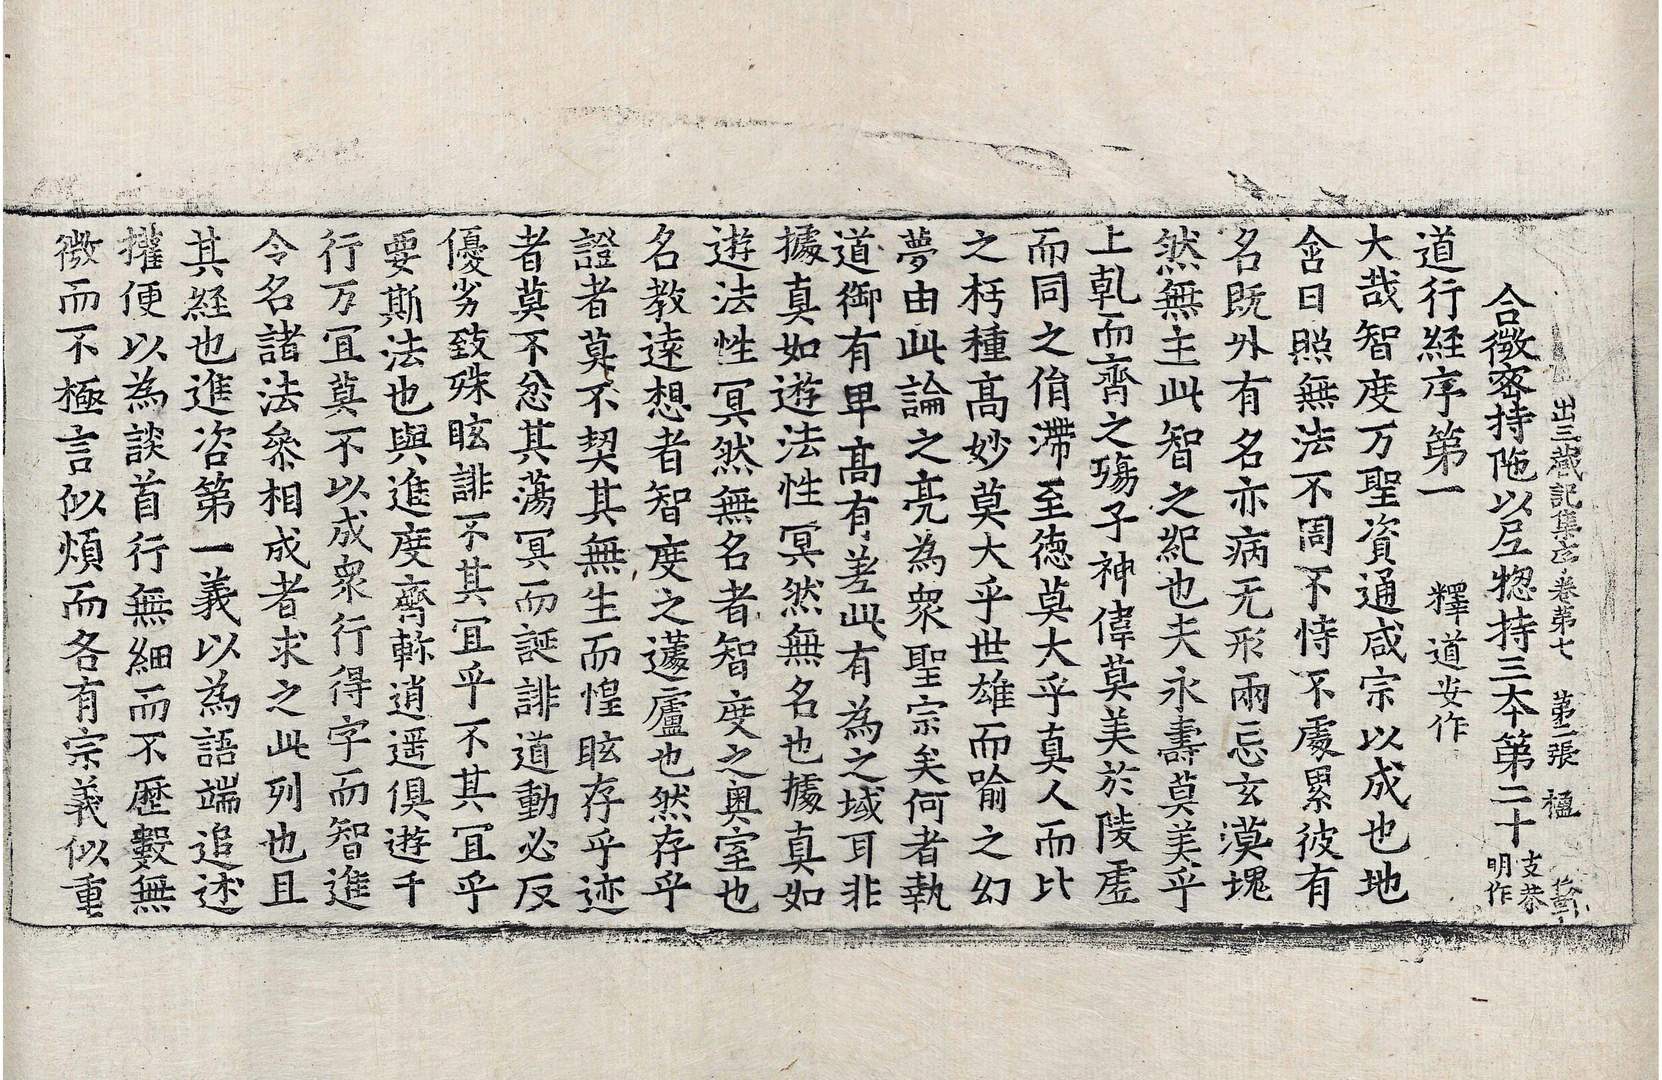 出三藏記集序卷第七　第二張　楹
合微密持陁以尼惣持三本第二十支恭明作
道行経序第一　釋道安作
大哉智度万聖資通咸宗以成也地
含日照無法不周不恃不處累彼有
名既外有名亦病无形兩忘玄漠塊
然無主此智之紀也夫永壽莫美乎
上乹而齊之殤子神偉莫美於陵虛
而同之㳙滯至德莫大乎真人而比
之朽種高妙莫大乎世雄而喻之幻
夢由此論之亮為衆聖宗矣何者執
道御有卑高有差此有為之域耳非
據真如遊法性冥然無名也據真如
遊法性冥然無名者智度之奥室也
名教遠想者智度之蘧廬也然存乎
證者莫不契其無生而惶眩存乎迹
者莫不忿其蕩冥而誕誹道動必反
優劣致殊眩誹不其冝乎不其冝乎
要斯法也與進度齊軫逍遥俱遊千
行万㝎莫不以成衆行得字而智進
令名諸法叅相成者求之此列也且
其経也進咨第一義以為語端追述
權便以為談首行無細而不歷數無
微而不極言似煩而各有宗義似重